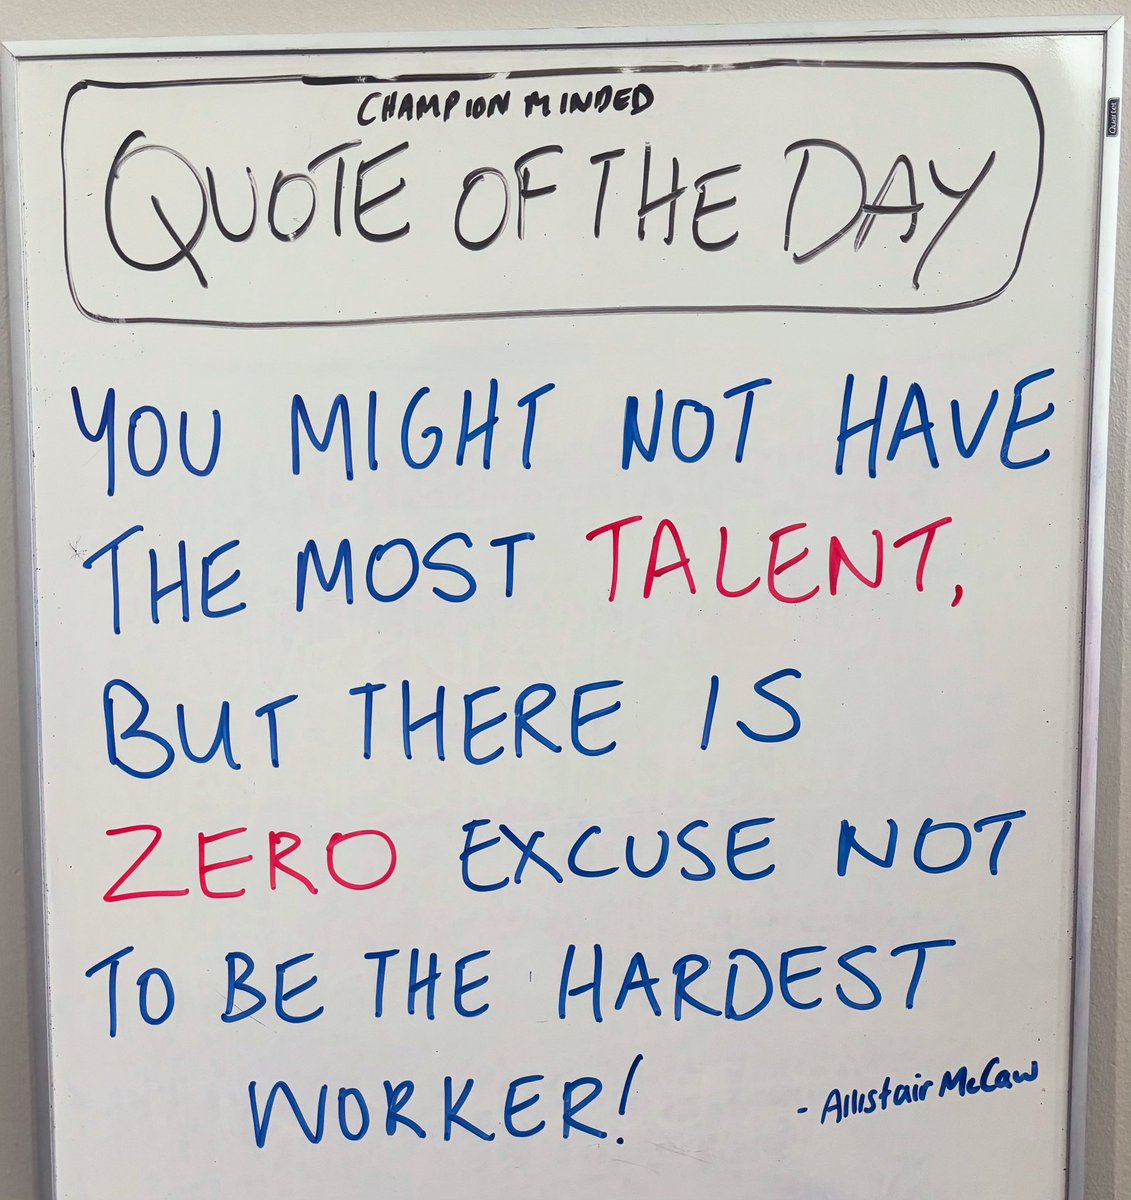 CHAMPION MINDED
QUOTE OF THE DAY
Quartet
YOU MIGHT NOT HAVE
THE MOST TALENT,
BUT THERE IS
ZERO EXCUSE NOT
TO BE THE HARDEST
WORKER!
- Allistair McCaw